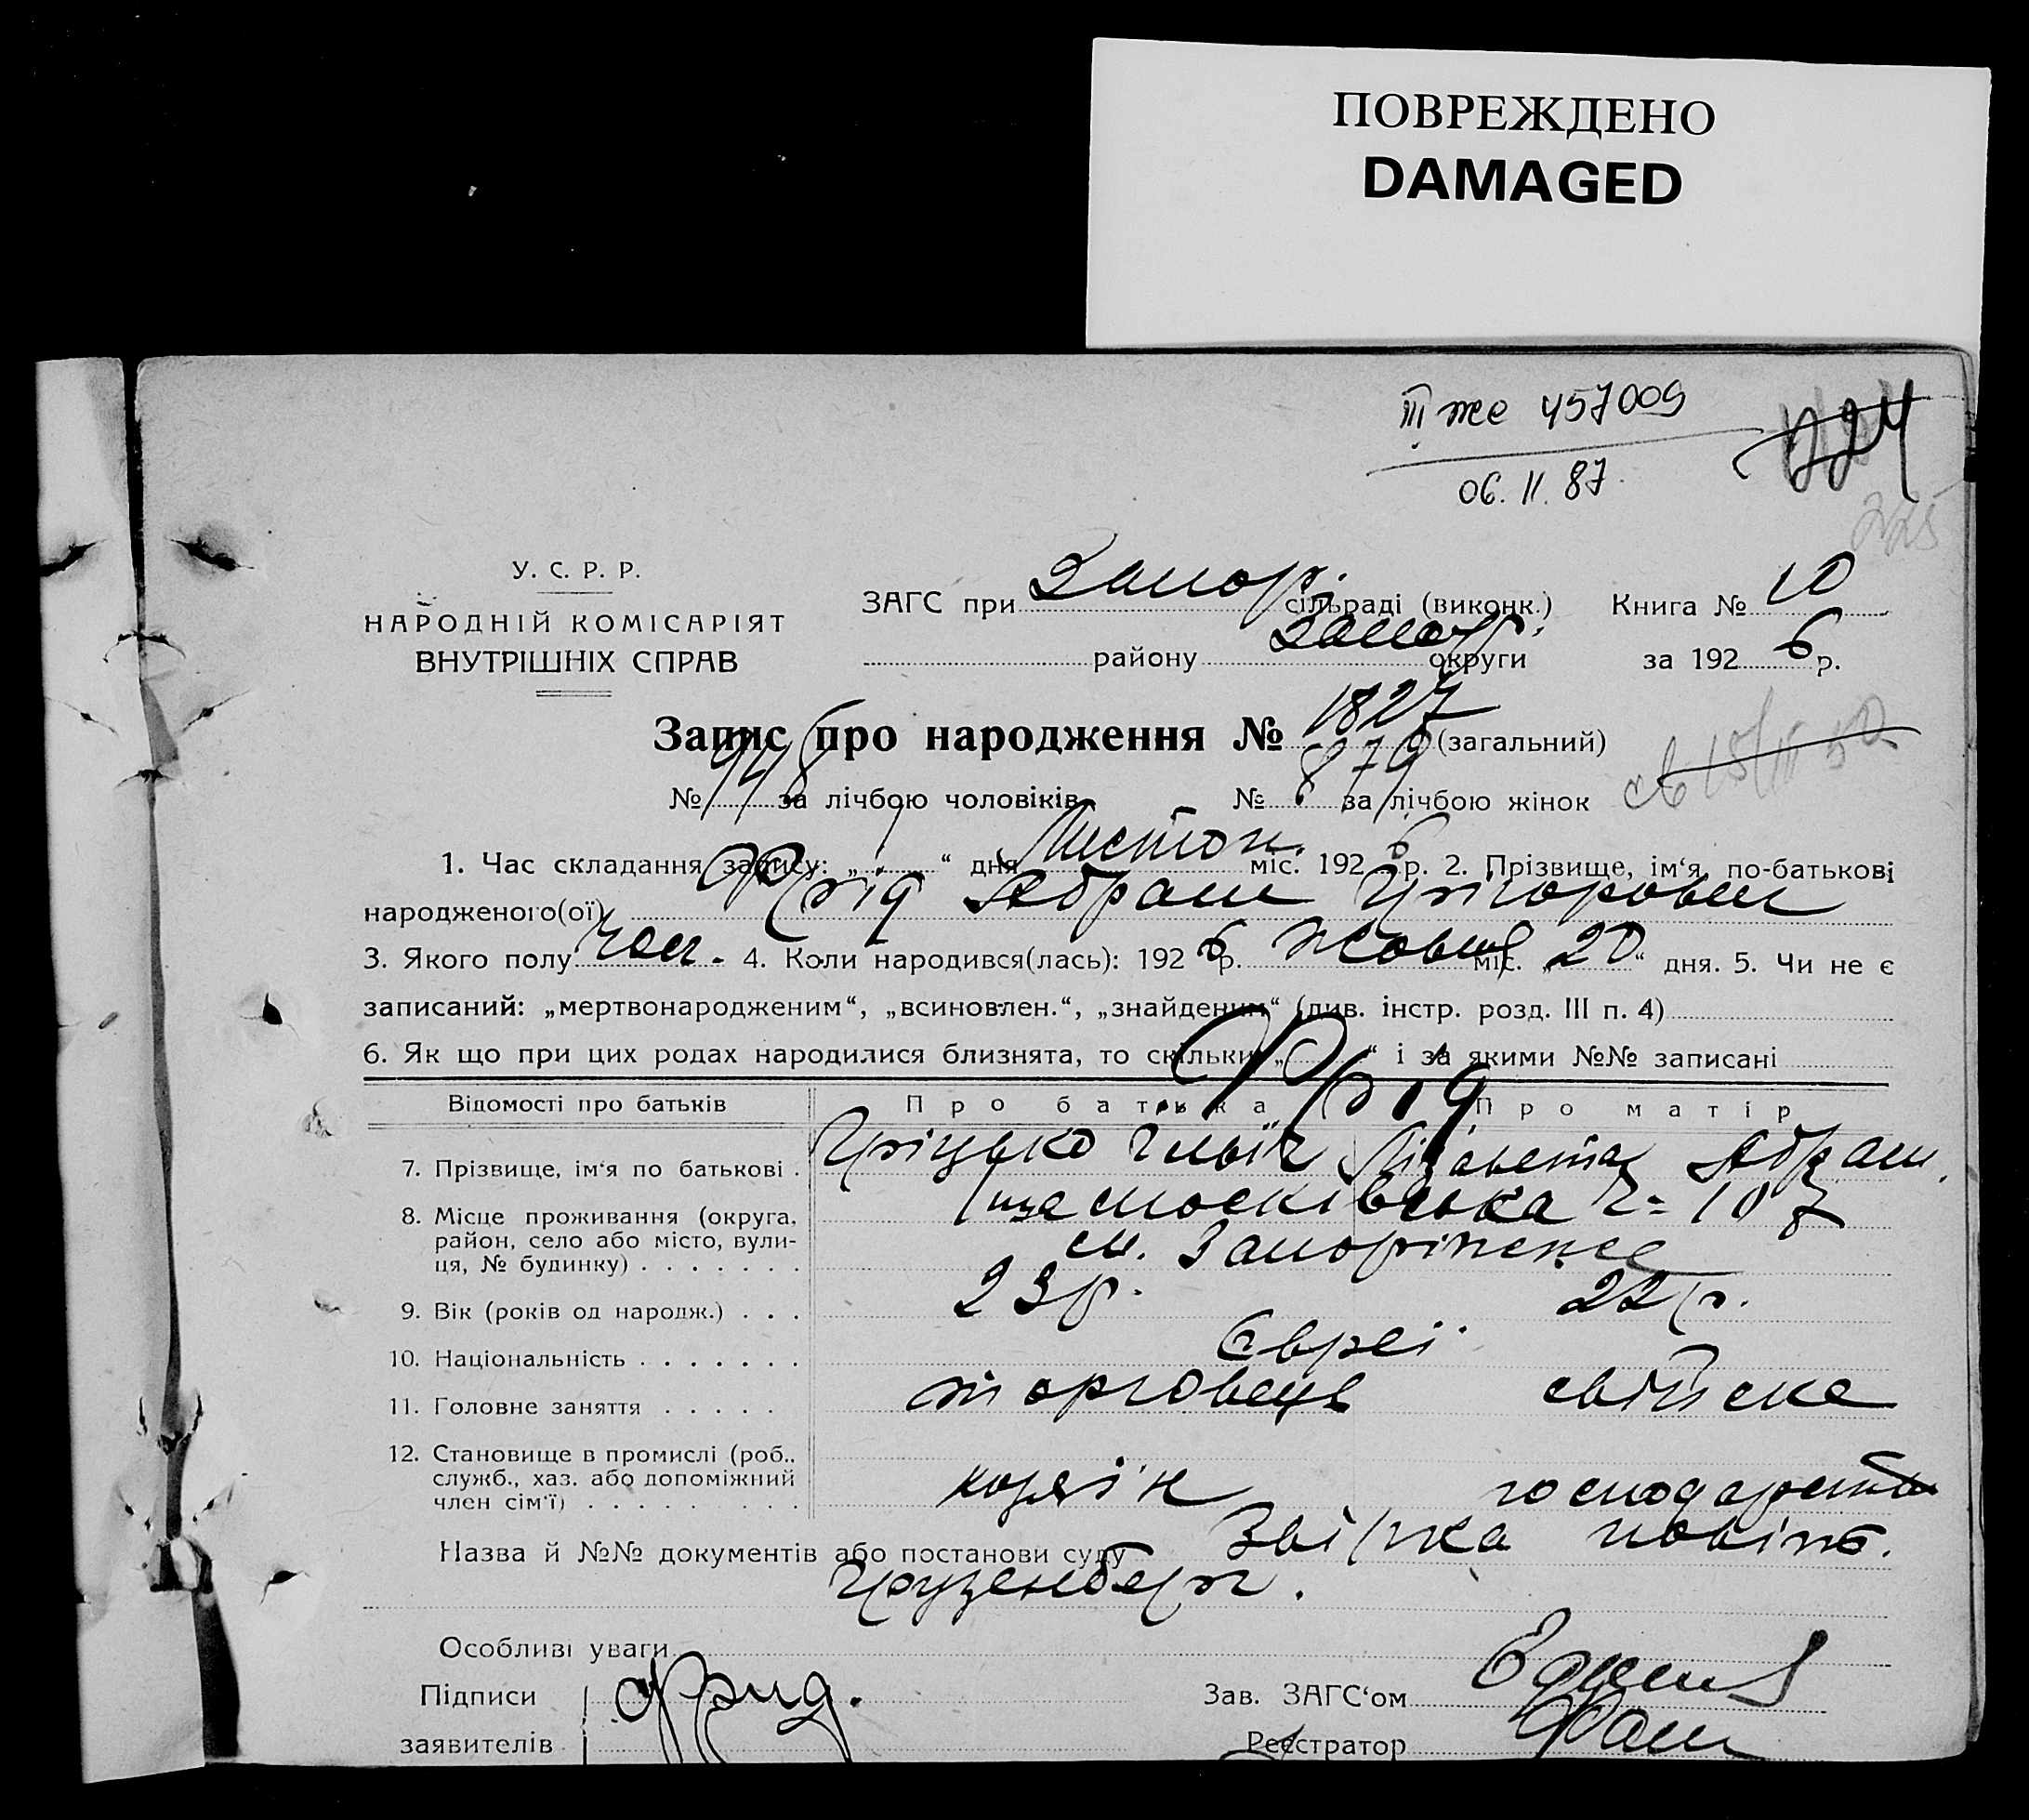 ПОВРЕЖДЕНО
DAMAGED
III же 457009
06.11.87
224
225
У. С. Р. Р.
НАРОДНІЙ КОМІСАРІЯТ
ВНУТРІШНІХ СПРАВ
ЗАГС при Запор. сільраді (виконк.) Книга № 10
району Запор. округи за 192 6 р.
Запис про народження № 1827 (загальний)
№ 948 за лічбою чоловіків № 879 за лічбою жінок
1. Час складання запису: „ 1 “ дня Листоп. міс. 192 6 р. 2. Прізвище, ім‘я, по-батькові
народженого(ої) Фрід Абрам Григорович
3. Якого полу чол. 4. Коли народився(лась): 192 6 р. жовт міс. „ 20 “ дня. 5. Чи не є
записаний: „мертвонародженим“, „всиновлен.“, „знайденим“ (див. інстр. розд. III п. 4)
6. Як що при цих родах народилися близнята, то скільки „ “ і за якими №№ записані
Відомості про батьків Про батька Про матір
Фрід
7. Прізвище, ім‘я по батькові . Гріцько Ілльїч Лізавета Абрам.
8. Місце проживання (округа, район, село або місто, вулиця, № будинку) . . . . . . .
московська ч= 107
м. Запоріжжє
9. Вік (років од народж.) . . . 23 р. 22 р.
10. Національність . . . . . . . Євреї
11. Головне заняття . . . . . торговець свійске
12. Становище в промислі (роб., служб., хаз. або допоміжний член сім‘ї) . . . . . . . . . хозяїн господарство
Назва й №№ документів або постанови суду Звірка повіт.
Грузенберг.
Особливі уваги
Підписи Фрид. Зав. ЗАГС‘ом
заявителів Реєстратор